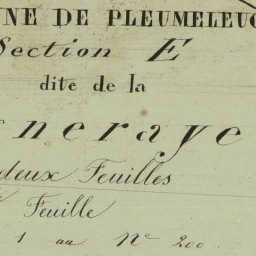 NE DE PLEUMELEUC
Section E
dite de la
neraye
deux Feuilles
Feuille
1 au N° 200.